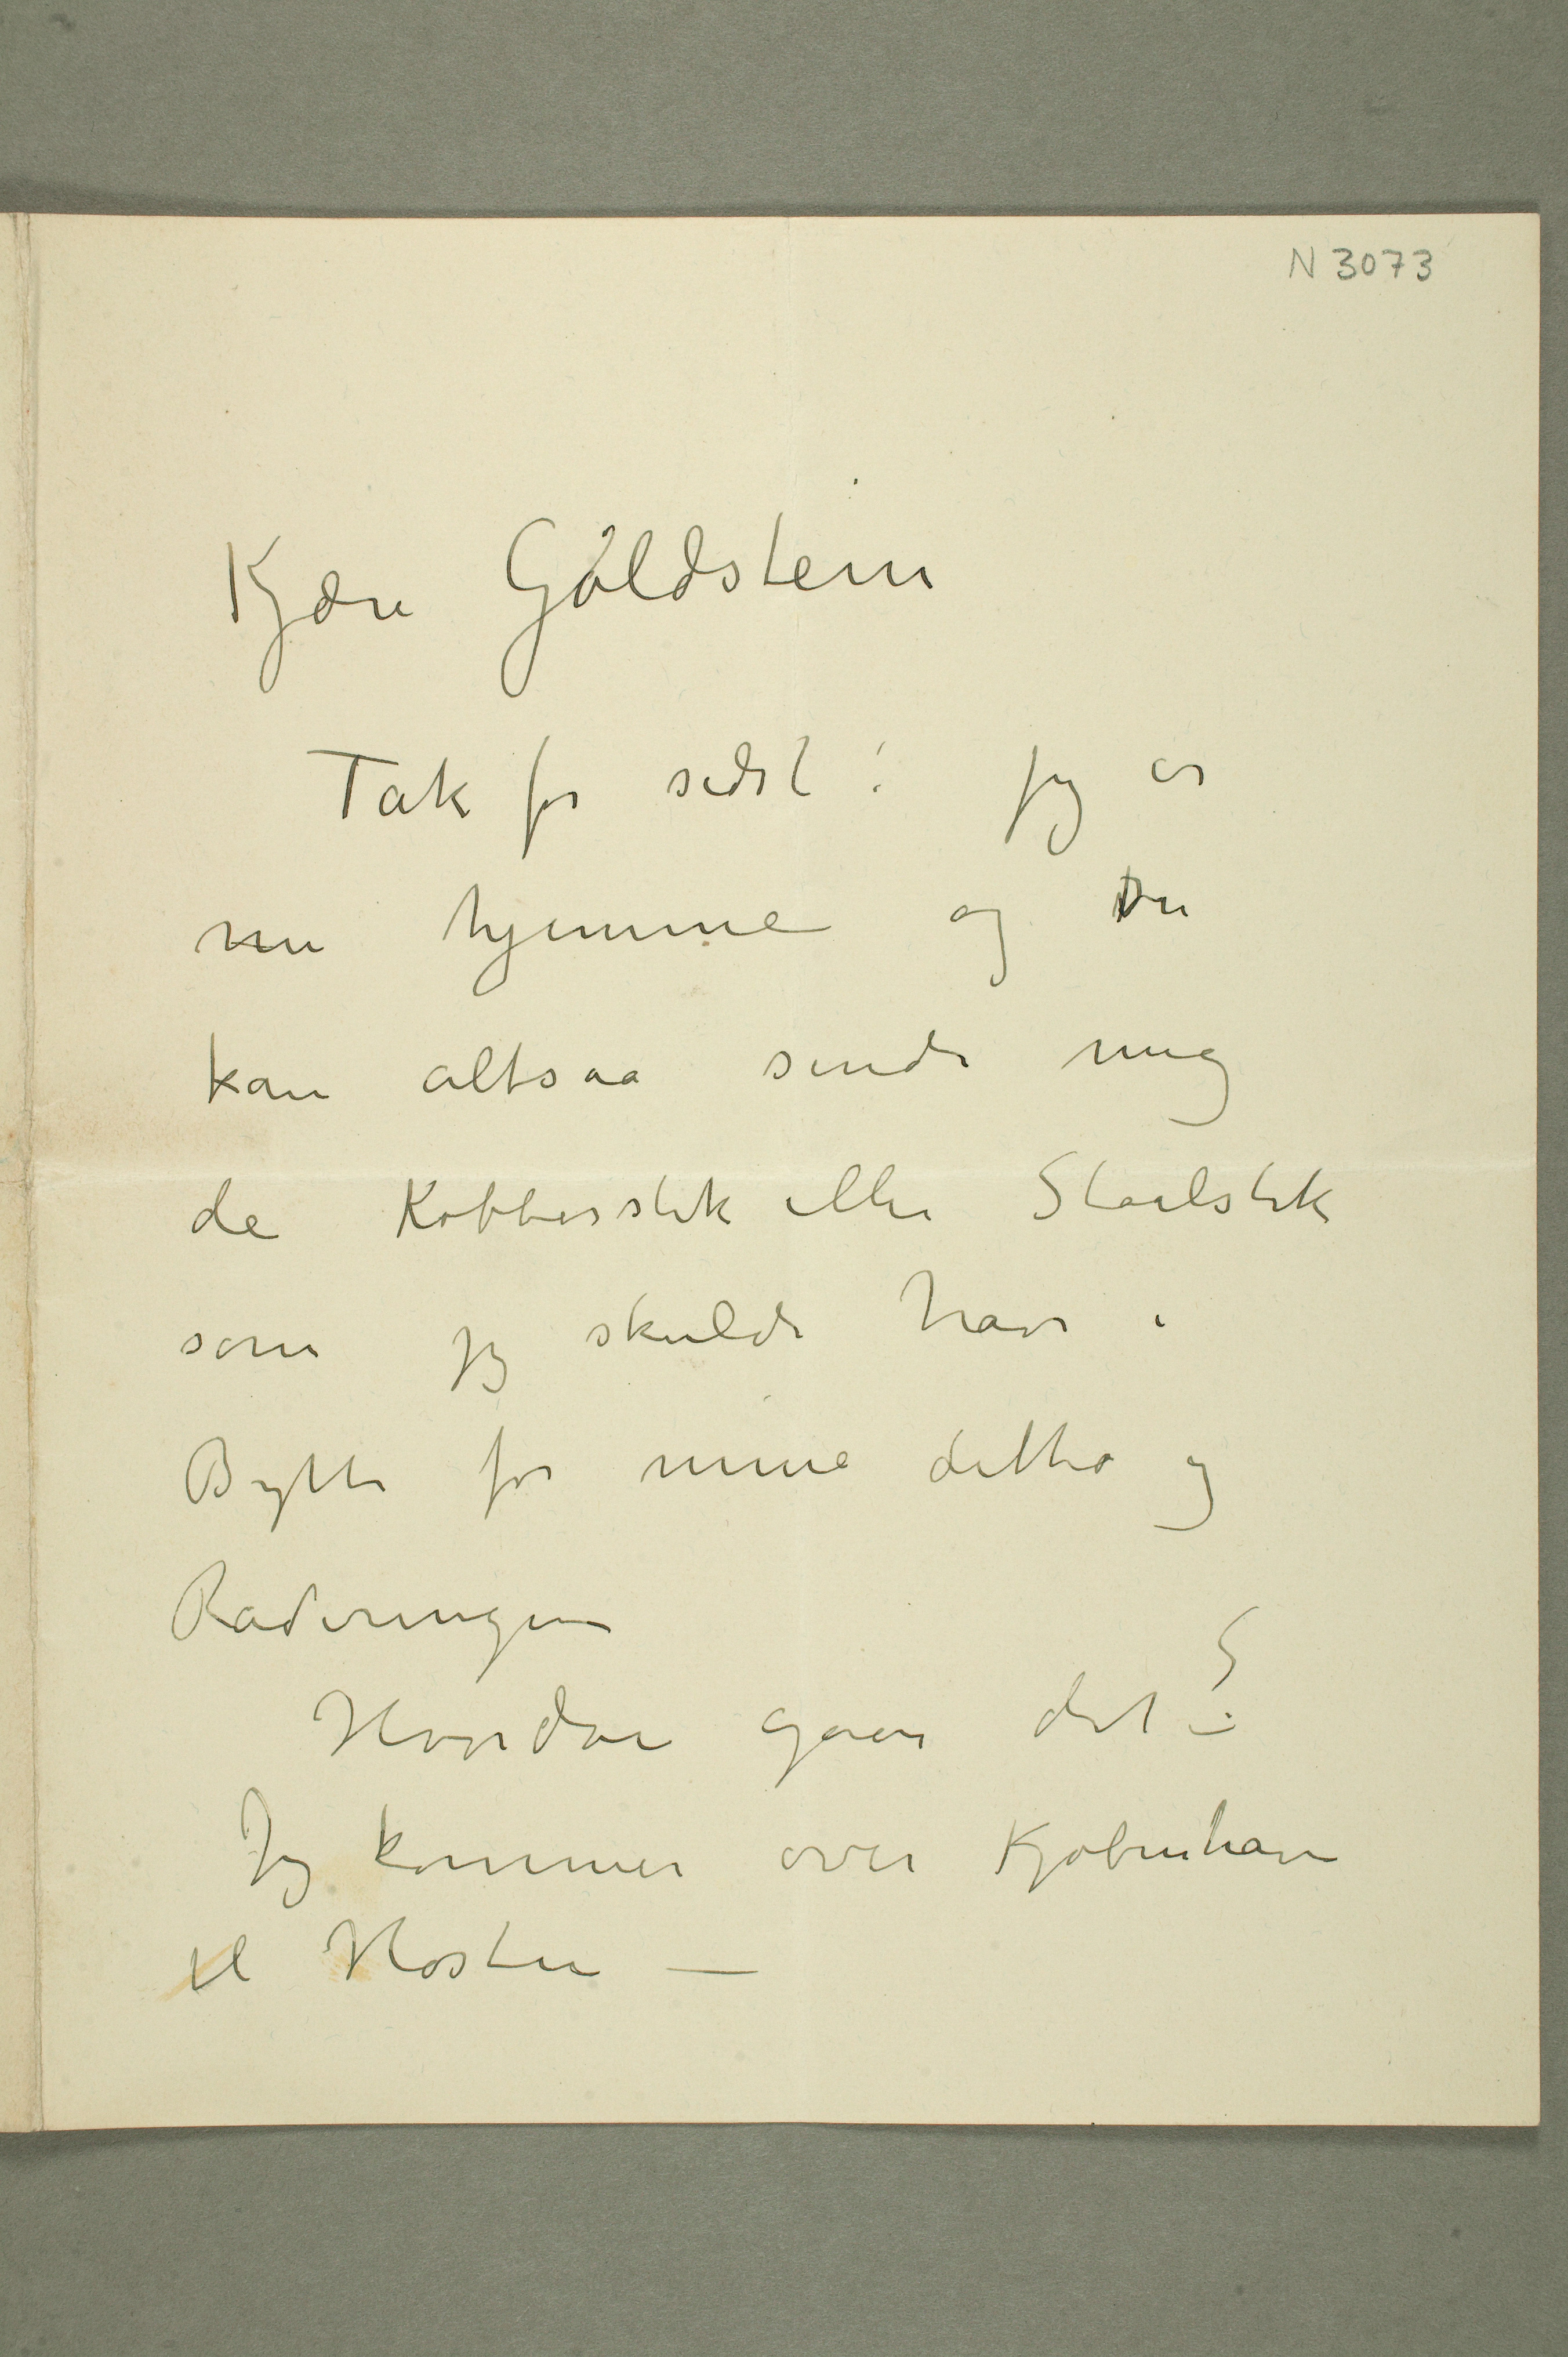 N 3073
Kjære Goldstein
Tak for sidst! Jeg er
nu hjemme og Du
kan altsaa sende mig
de Kobberstik eller Staalstik
som jeg skulde have i
Bytte for mine ditto og
Raderinger
Hvordan gaar det?
Jeg kommer over Kjøbenhavn
til Høsten —